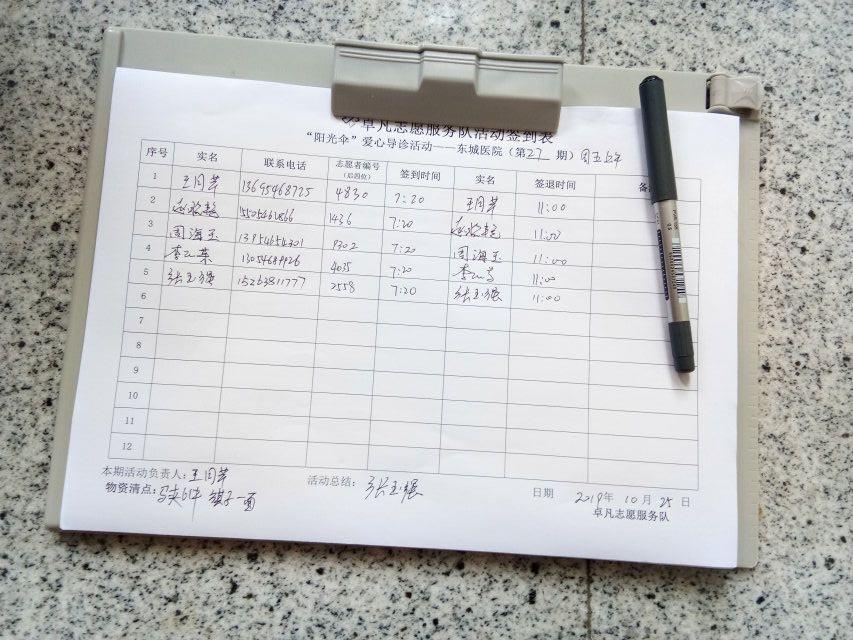 卓凡志愿服务队活动签到表
“阳光伞”爱心导诊活动——东城医院（第27期）周五上午
序号 实名 联系电话 志愿者编号（后四位） 签到时间 实名 签退时间 备
1 王同苹 13695468725 4830 7:20 王同苹 11:00
2 1436 7:20 11:00
3 周海玉 13954654301 9302 7:20 周海玉 11:00
4 7:20 11:00
5 张玉强 15263811777 2558 7:20 张玉强 11:00
6
7
8
9
10
11
12
本期活动负责人：王同苹 活动总结：张玉强 日期 2019年10月25日
物资清点：马夹6件 旗子一面 卓凡志愿服务队